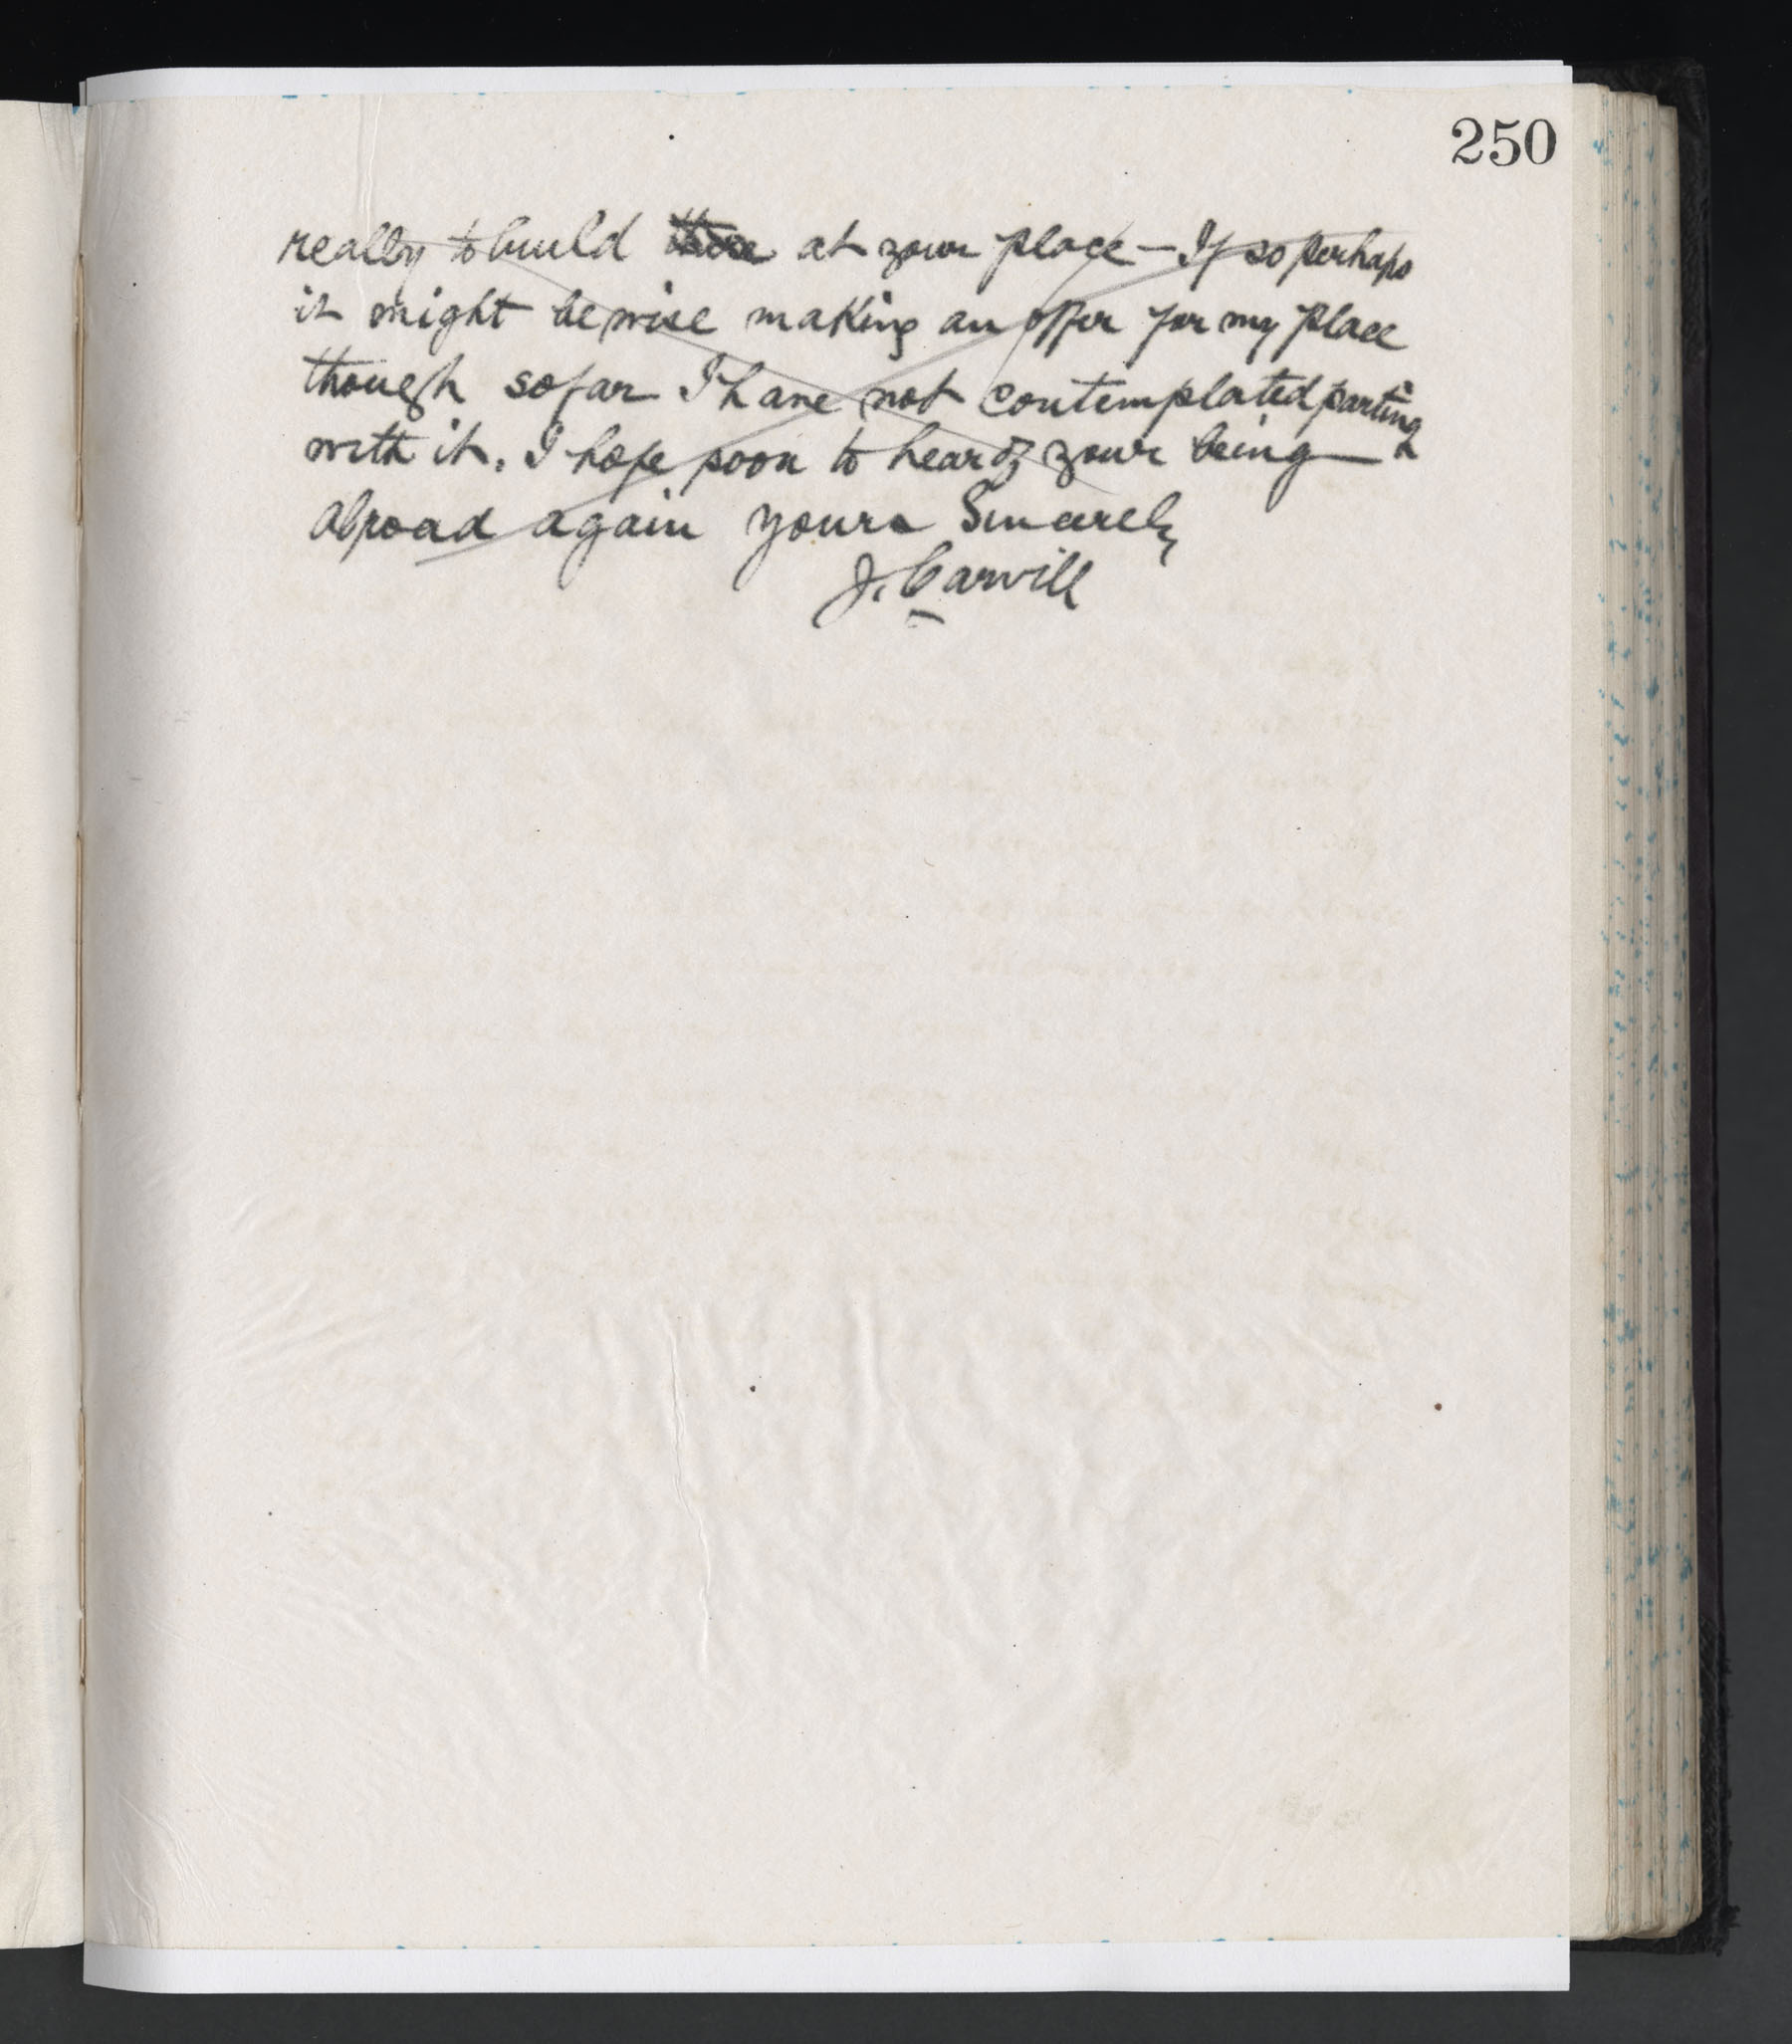 250
really to build there at your place — If so perhaps
it might be wise making an offer for my place
though so far I have not contemplated parting
with it. I hope soon to hear of your being
abroad again yours Sincerely
J. Carvill